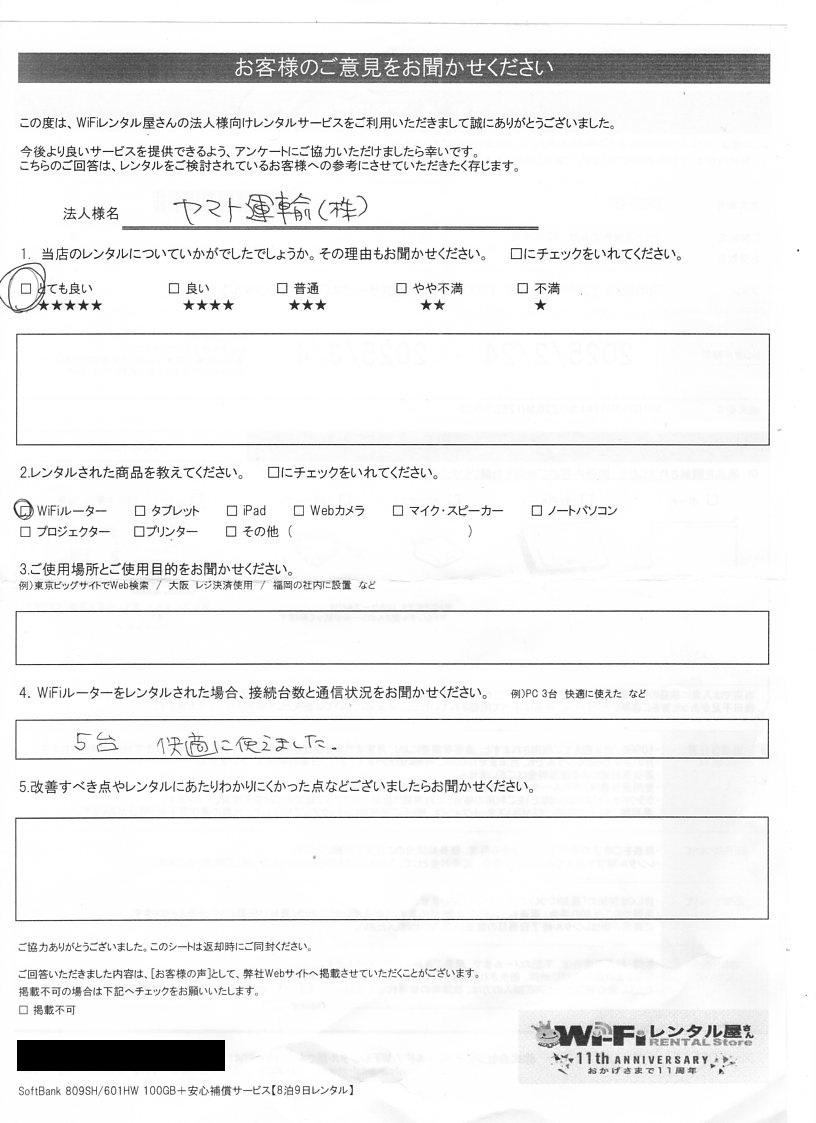 お客様のご意見をお聞かせください
この度は、WiFiレンタル屋さんの法人様向けレンタルサービスをご利用いただきまして誠にありがとうございました。
今後より良いサービスを提供できるよう、アンケートにご協力いただけましたら幸いです。
こちらのご回答は、レンタルをご検討されているお客様への参考にさせていただきたく存じます。
法人様名 ヤマト運輸(株)
1. 当店のレンタルについていかがでしたでしょうか。その理由もお聞かせください。 □にチェックをいれてください。
□ とても良い □ 良い □ 普通 □ やや不満 □ 不満
★★★★★ ★★★★ ★★★ ★★ ★
2.レンタルされた商品を教えてください。 □にチェックをいれてください。
□ WiFiルーター □ タブレット □ iPad □ Webカメラ □ マイク・スピーカー □ ノートパソコン
□ プロジェクター □プリンター □ その他 ( )
3.ご使用場所とご使用目的をお聞かせください。
例)東京ビッグサイトでWeb検索 / 大阪 レジ決済使用 / 福岡の社内に設置 など
4. WiFiルーターをレンタルされた場合、接続台数と通信状況をお聞かせください。 例)PC 3台 快適に使えた など
5台 快適に使えました.
5.改善すべき点やレンタルにあたりわかりにくかった点などございましたらお聞かせください。
ご協力ありがとうございました。このシートは返却時にご同封ください。
ご回答いただきました内容は、[お客様の声]として、弊社Webサイトへ掲載させていただくことがございます。
掲載不可の場合は下記へチェックをお願いいたします。
□ 掲載不可
Wi-Fiレンタル屋さん
RENTAL Store
11th ANNIVERSARY
おかげさまで11周年
SoftBank 809SH/601HW 100GB＋安心補償サービス【8泊9日レンタル】